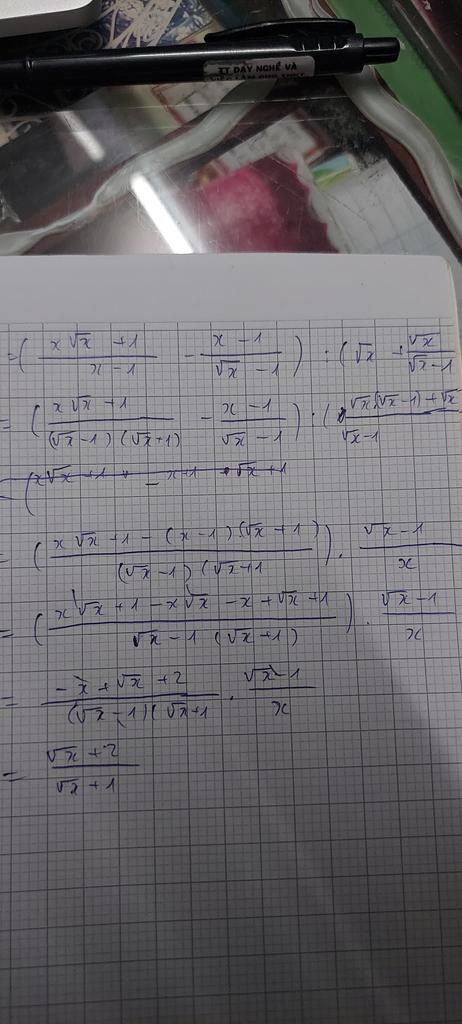 TT DẠY NGHỀ VÀ
= ( \frac{x\sqrt{x} + 1}{x - 1} - \frac{x - 1}{\sqrt{x} - 1} ) : ( \sqrt{x} + \frac{\sqrt{x}}{\sqrt{x} - 1}
= ( \frac{x\sqrt{x} + 1}{(\sqrt{x} - 1)(\sqrt{x} + 1)} - \frac{x - 1}{\sqrt{x} - 1} ) : ( \frac{\sqrt{x}(\sqrt{x} - 1) + \sqrt{x}}{\sqrt{x} - 1}
= ( \frac{x\sqrt{x} + 1 - (x - 1)(\sqrt{x} + 1)}{(\sqrt{x} - 1)(\sqrt{x} + 1} ) . \frac{\sqrt{x} - 1}{x}
= ( \frac{x\sqrt{x} + 1 - x\sqrt{x} - x + \sqrt{x} + 1}{\sqrt{x} - 1 (\sqrt{x} + 1)} ) . \frac{\sqrt{x} - 1}{x}
= \frac{-x + \sqrt{x} + 2}{(\sqrt{x} - 1)(\sqrt{x} + 1} . \frac{\sqrt{x} - 1}{x}
= \frac{\sqrt{x} + 2}{\sqrt{x} + 1}